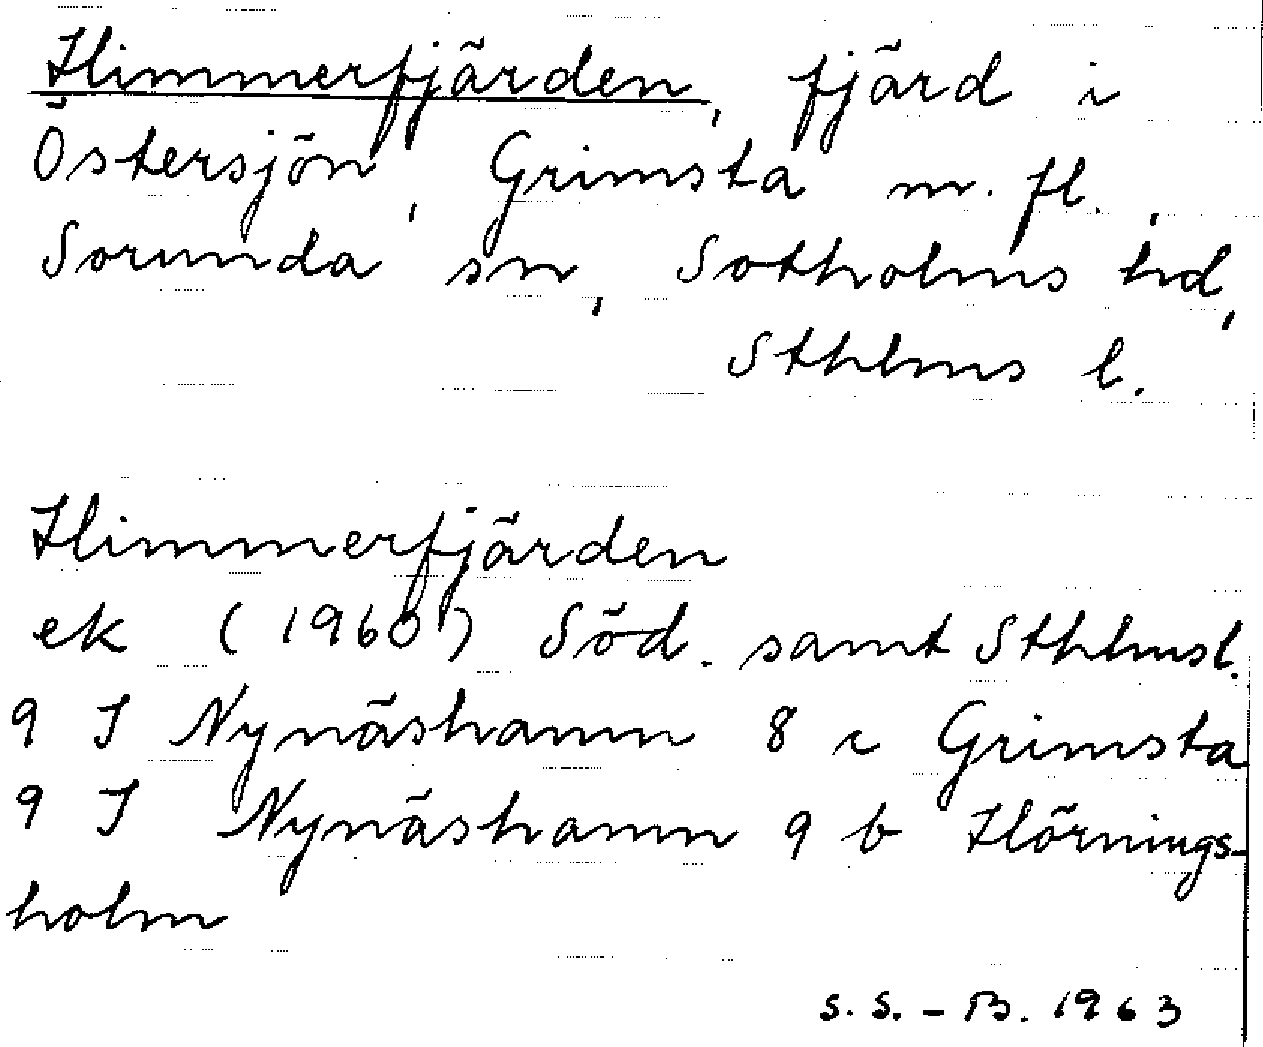 Himmerfjärden, fjärd i
Östersjön, Grimsta m. fl.,
Sorunda sn, Sotholms hd,
Sthlms l.
Himmerfjärden
ek (1960) Söd. samt Sthlmsl.
9 I Nynäshamn 8 c Grimsta
9 I Nynäshamn 9 b Hörnings-
holm
S. S. - B. 1963